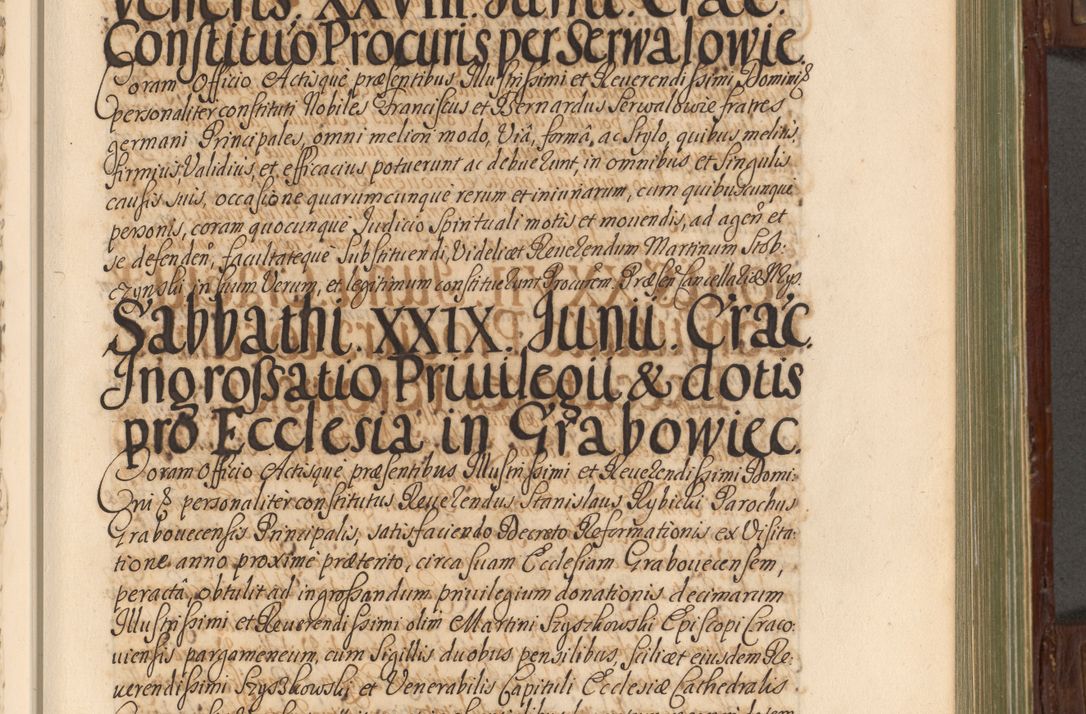 Veneris. XXVIII. Junii. Crac.
Constitutio Procuris per Serwałowie.
Coram Officio Actisque præsentibus Illustrissimi et Reuerendissimi Domini &
personaliter constituti Nobiles Franciscus et Bernardus Serwałowie fratres
germani Principales, omni meliori modo, Viâ, formâ, ac stylo, quibus melius,
firmius, Validius, et efficacius potuerunt ac debuerunt, in omnibus et singulis
causis suis, occasione quarumcunque rerum et iniuriarum, cum quibuscunque
personis, coram quocunque Iudicio Spirituali motis et mouendis, ad agen et
se defenden, facultateque substituendi, Videlicet Reuerendum Martinum Stob-
czynski in suum Verum, et legitimum constituerunt Procurem. Præsen Cancellariæ Mgr.
Sabbathi. XXIX. Junii. Crac.
Ingrossatio Priuilegii & dotis
pro Ecclesia in Grabowiec.
Coram Officio Actisque præsentibus Illustrissimi et Reuerendissimi Domi:
ni & personaliter constitutus Reuerendus Stanislaus Rybicki Parochus
Grabouecensis Principalis, satisfaciendo Decreto Reformationis ex Visita:
tione anno proxime prætento, circa suam Ecclesiam Grabouecensem,
peractâ, obtulit ad ingrossandum priuilegium donationis decimarum
Illustrissimi et Reuerendissimi olim Martini Szyszkowski Episcopi Craco:
uiensis pargameneum, cum sigillis duobus pensilibus, scilicet eiusdem Re:
uerendissimi Szyszkowski, et Venerabilis Capituli Ecclesiæ Cathedralis